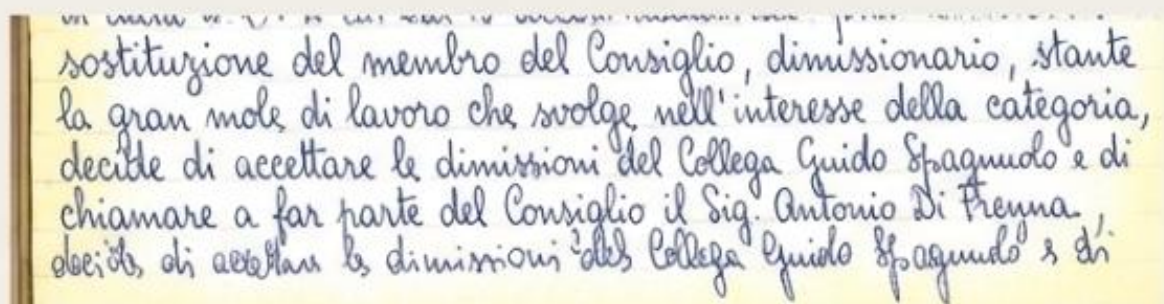 sostituzione del membro del Consiglio, dimissionario, stante
la gran mole di lavoro che svolge nell'interesse della categoria,
decide di accettare le dimissioni del Collega Guido Spagnuolo e di
chiamare a far parte del Consiglio il Sig. Antonio Di Frenna,
decide di accettare le dimissioni del Collega Guido Spagnuolo e di